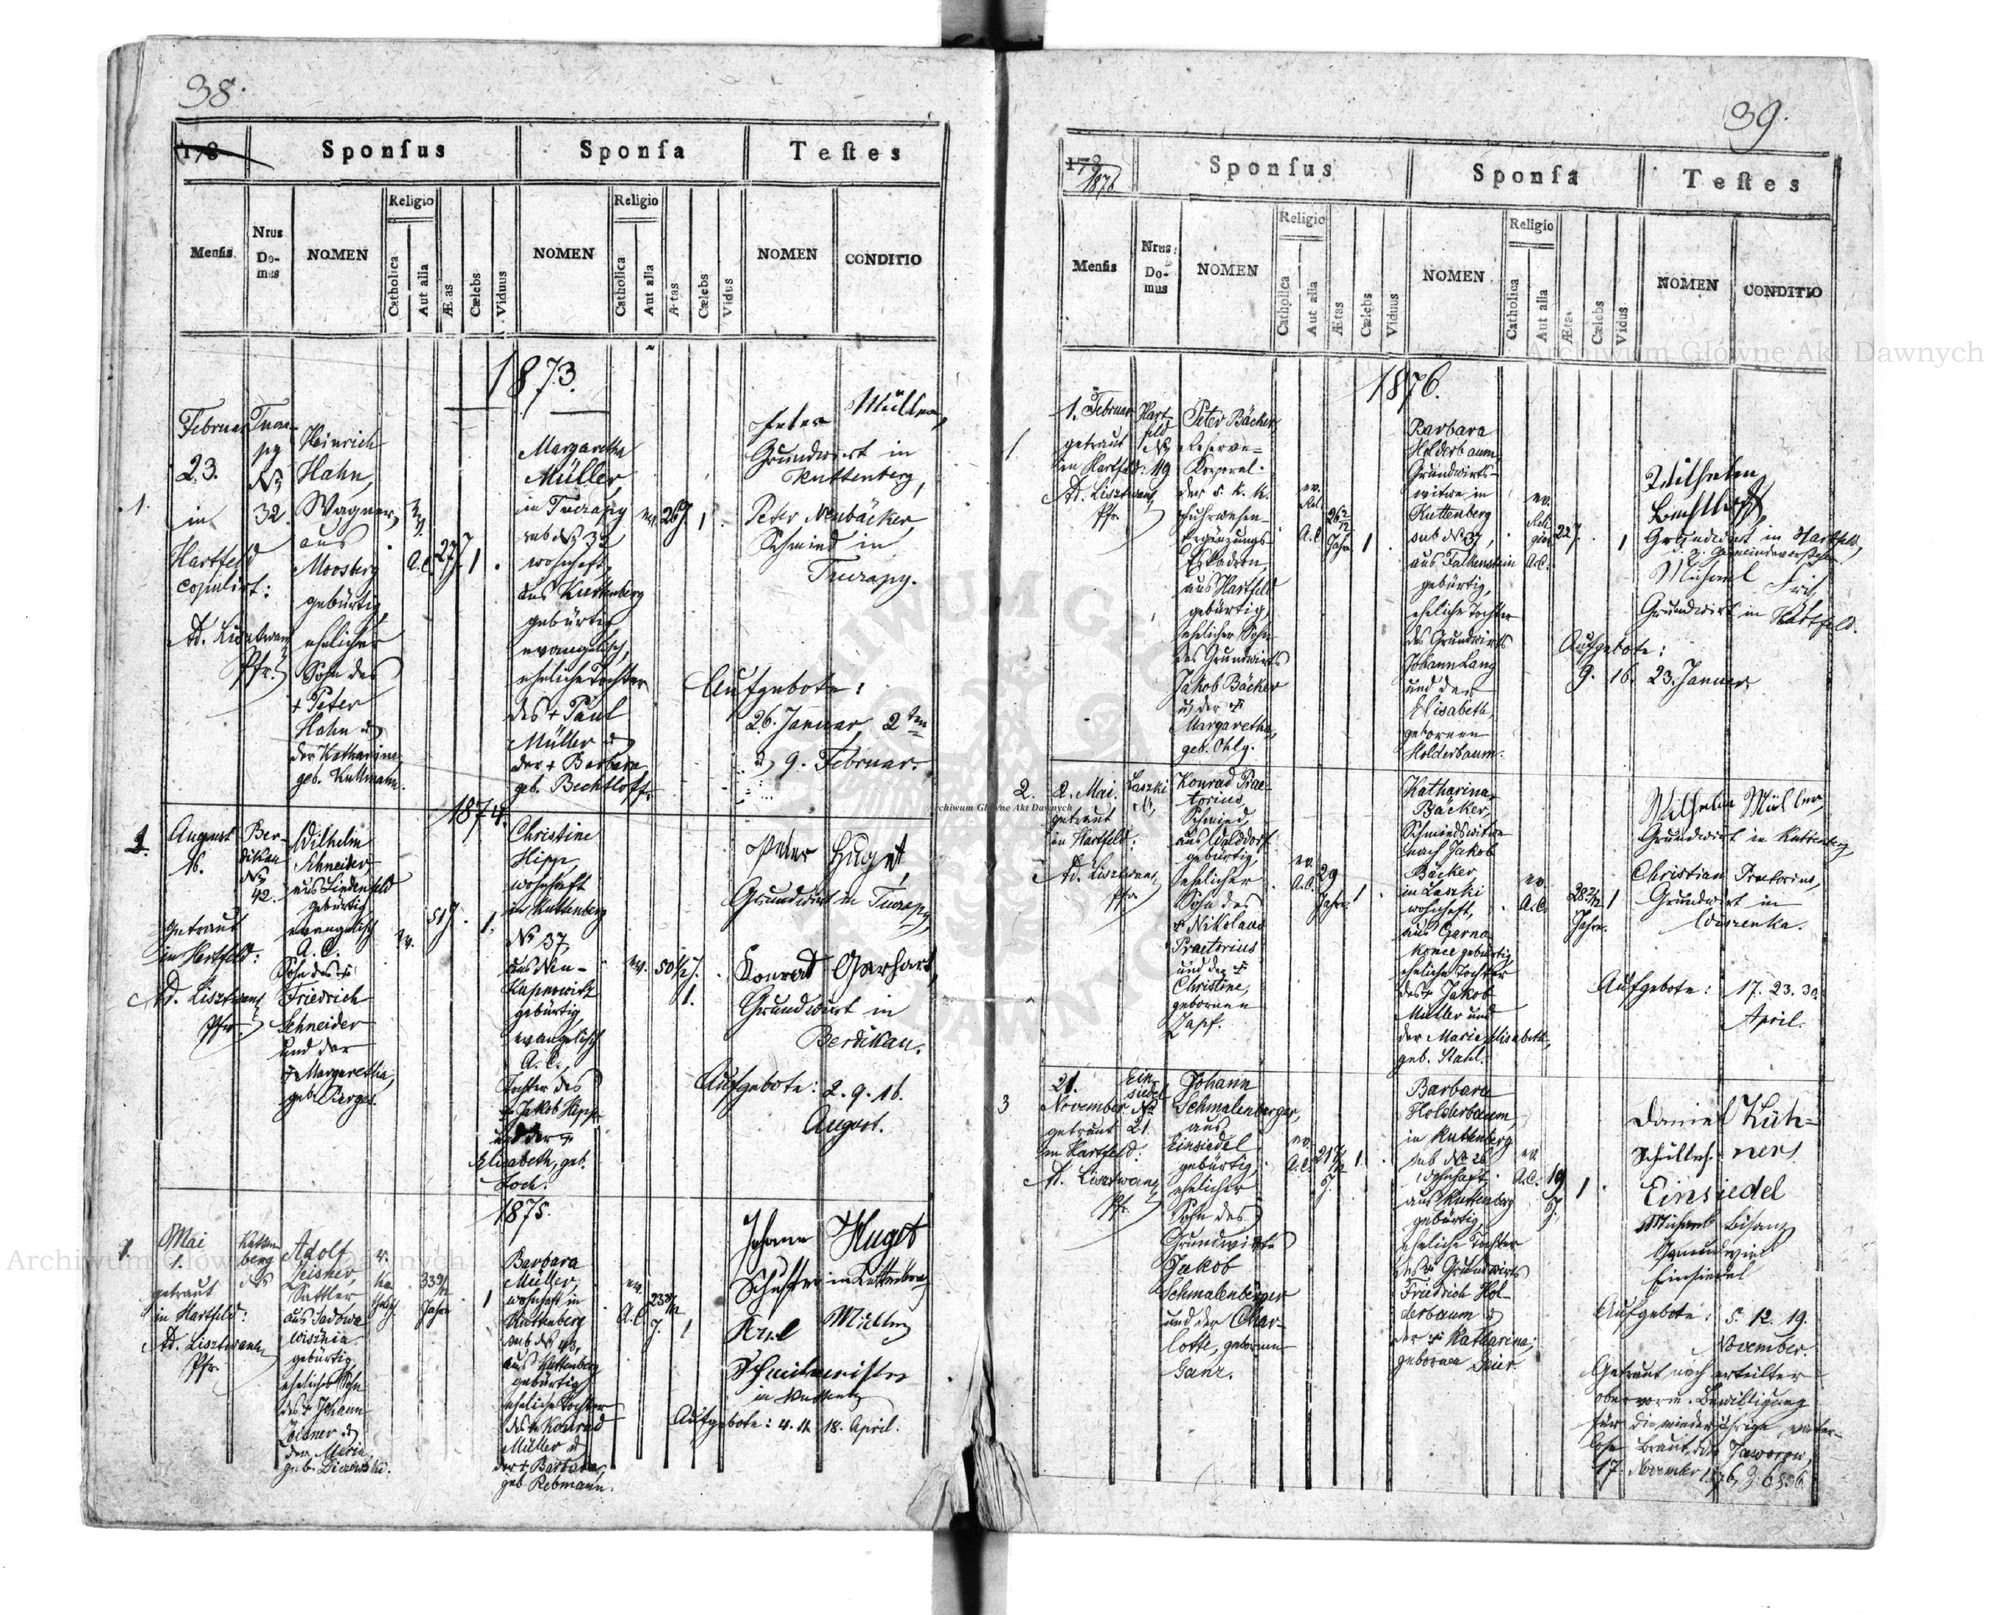 38.
178
Sponsus
Sponsa
Testes
Mensis
Nrus
Do-
mus
NOMEN
Religio
Catholica
Aut alia
Ætas
Cælebs
Viduus
NOMEN
Religio
Catholica
Aut alia
Ætas
Cælebs
Vidus
NOMEN
CONDITIO
1873.
1.
Februar
23.
in
Hartfeld
copulirt:
Ad. Lisztwan
Pfr.
32.
Heinrich
Hahn,
Wagner,
aus
Moosberg
gebürtig,
ehelicher
Sohn des
+ Peter
Hahn u
der Katharina
geb. Kullmann.
A.C.
27 J.
1
Margaretha
Müller,
in Turapy
sub № 32
wohnhaft,
aus Kuttenberg
gebürtig
evangelisch,
eheliche Tochter
des + Paul
Müller u
der + Barbara
geb. Bechtloff.
ev.
26 J.
1.
Peter Müller,
Grundwirt in
Kuttenberg,
Peter Neubäcker
Schmied in
Turapy.
Aufgebote:
26. Januar, 2ten
u 9. Februar.
1874.
1.
August
16.
getraut
in Hartfeld:
Ad. Lisztwan
Pfr.
Ber-
dikau
№
42.
Wilhelm
Schneider
aus Lindenfeld
gebürtig
evangelisch
A. C.
Sohn des +
Friedrich
Schneider
und der
+ Margaretha,
geb. Porges.
ev.
51 J.
1.
Christine
Hipp,
wohnhaft
in Kuttenberg
№ 37
aus Neu-
Kupnowitz
gebürtig,
evangelisch
A. C.,
Tochter des
+ Jakob Hipp
und der +
Elisabeth, geb.
Koch.
ev.
50 1/2 J.
1.
Peter Huget,
Grundwirt in Turapy,
Konrad Gerhart,
Grundwirt in
Berdikau.
Aufgebote: 2. 9. 16.
August.
1875.
1.
Mai
getraut
in Hartfeld:
Ad. Lisztwan
Pfr.
Kutten-
berg
Adolf
Zeisner,
Sattler
aus Sadowa
wisznia
gebürtig,
ehelicher Sohn
des + Johann
Zeisner u
der Maria
33 9/12
Jahre
1
Barbara
Müller,
wohnhaft in
Kuttenberg
sub № 43,
aus Kuttenberg
gebürtig
eheliche Tochter
des + Konrad
Müller u
der + Barbara,
geb. Rebmann.
ev.
A.C.
23 8/12
J.
1
Johann Huget
Schuster in Kuttenberg
Karl Müller
Schullmeister
Aufgebote: 4. 11. 18. April.
39.
178
1876
Sponsus
Sponsa
Testes
Mensis
Nrus
Do-
mus
NOMEN
Religio
Catholica
Aut alia
Ætas
Cælebs
Vidus
NOMEN
Religio
Catholica
Aut alia
Ætas
Cælebs
Vidus
NOMEN
CONDITIO
1876.
1
1. Februar
getraut
in Hartfeld:
Ad. Lisztwan
Pfr.
Hart-
feld
№
49
Peter Bäcker
Reserve-
Korporal
der k. k.
Fuhrwesen-
Ergänzungs-
Eskadron,
aus Hartfeld
gebürtig,
ehelicher Sohn
des Grundwirts
Jakob Bäcker
u der +
Margaretha,
geb. Ohlg.
ev.
A.C.
26 2/12
Jahre
1
Barbara
Holderbaum,
Grundwirts-
witwe in
Kuttenberg
sub № 37,
aus Falkenstein
gebürtig,
eheliche Tochter
des Grundwirts
Johann Lang
und der
Elisabeth,
gebornen
Holderbaum.
ev.
Reli-
gion
A.C.
22 J.
1
Wilhelm
Bechtloff,
Grundwirt in Hartfeld,
z. Z. Gemeindevorsteher
Michael Frit
Grundwirt in Hartfeld.
Aufgebote:
9. 16. 23. Januar.
2.
2. Mai
getraut
in Hartfeld:
Ad. Lisztwan
Pfr.
Laszki
Konrad Prae-
torius,
Schmied,
aus Walddorf
gebürtig,
ehelicher
Sohn des
+ Nikolaus
Praetorius
und der +
Christine,
gebornen
Zapf.
ev.
A.C.
29
Jahre
1
Katharina
Bäcker,
Schmiedswitwe
nach Jakob
Bäcker
in Laszki
wohnhaft,
aus Czarna
konce gebürtig,
eheliche Tochter
des + Jakob
Müller und
der Maria Elisabeth,
geb. Stahl.
ev.
A.C.
Jahre.
1
Wilhelm Müller,
Grundwirt in Kuttenberg
Christian Praetorius,
Grundwirt in
Wiszenka.
Aufgebote: 17. 23. 30.
April.
3
21.
November
getraut
in Hartfeld:
Ad. Lisztwan
Pfr.
Ein-
siedel
№
21.
Johann
Schmalenberger,
aus
Einsiedel
gebürtig,
ehelicher
Sohn des
Grundwirts
Jakob
Schmalenberger
und der Char-
lotte, gebornen
Ganz.
ev.
A.C.
J.
1.
Barbara
Holderbaum,
in Kuttenberg
sub № 26
wohnhaft,
aus Kuttenberg
gebürtig,
eheliche Tochter
des + Grundwirts
Friedrich Hol-
derbaum u
der + Katharina,
gebornen Baier.
ev.
A.C.
19
J.
1
Daniel Küh-
ners
Schullehr.
Einsiedel
Michael Bisanz
Grundwirt
Einsiedel
Aufgebote: 5. 12. 19.
November.
Getraut nach erteilter
obervorm. Bewilligung
für die minderjährige, vater-
lose Braut, ddo Jaworow,
17. November 1876,
Archiwum Główne Akt Dawnych
Archiwum Główne Akt Dawnych
Archiwum Główne Akt Dawnych